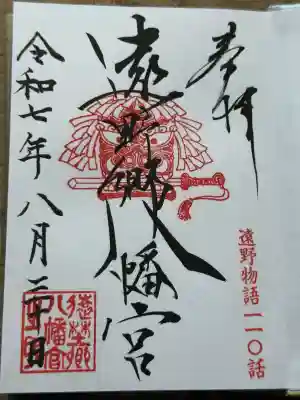 奉拝
遠野郷八幡宮
遠野物語一一〇話
令和七年八月三十日